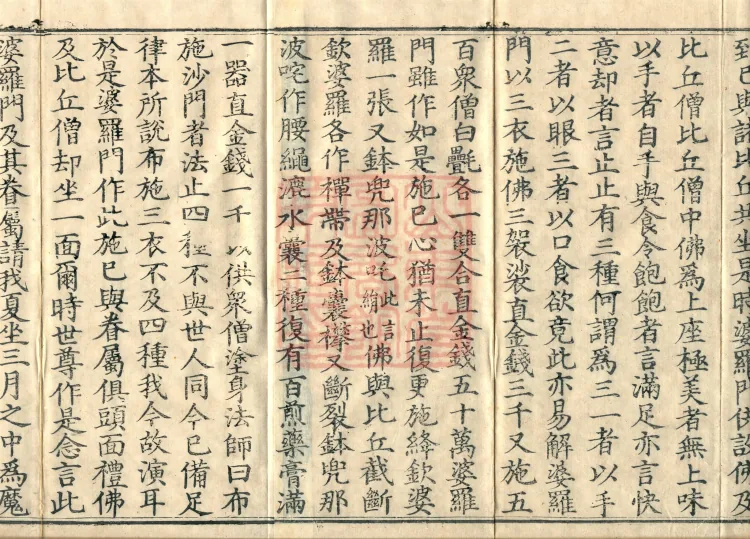 到已與諸比丘共坐是時婆羅門供設佛及
比丘僧比丘僧中佛爲上座極美者無上味
以手者自手與食令飽飽者言滿足亦言快
意却者言止止有三種何謂爲三一者以手
二者以眼三者以口食欲竟此亦易解婆羅
門以三衣施佛三袈裟直金錢三千又施五
百衆僧白氎各一雙合直金錢五十萬婆羅
門雖作如是施已心猶未止復更施絳欽婆
羅一張又鉢兜那波吒此言絹也佛與比丘截斷
欽婆羅各作禪帶及鉢囊襻又斷裂鉢兜那
波咤作腰繩漉水囊三種復有百煎藥膏滿
一器直金錢一千以供衆僧塗身法師曰布
施沙門者法止四種不與世人同今已備足
律本所說布施三衣不及四種我今故演耳
於是婆羅門作此施已與眷屬俱頭面禮佛
及比丘僧却坐一面爾時世尊作是念言此
婆羅門及其眷屬請我夏坐三月之中爲魔